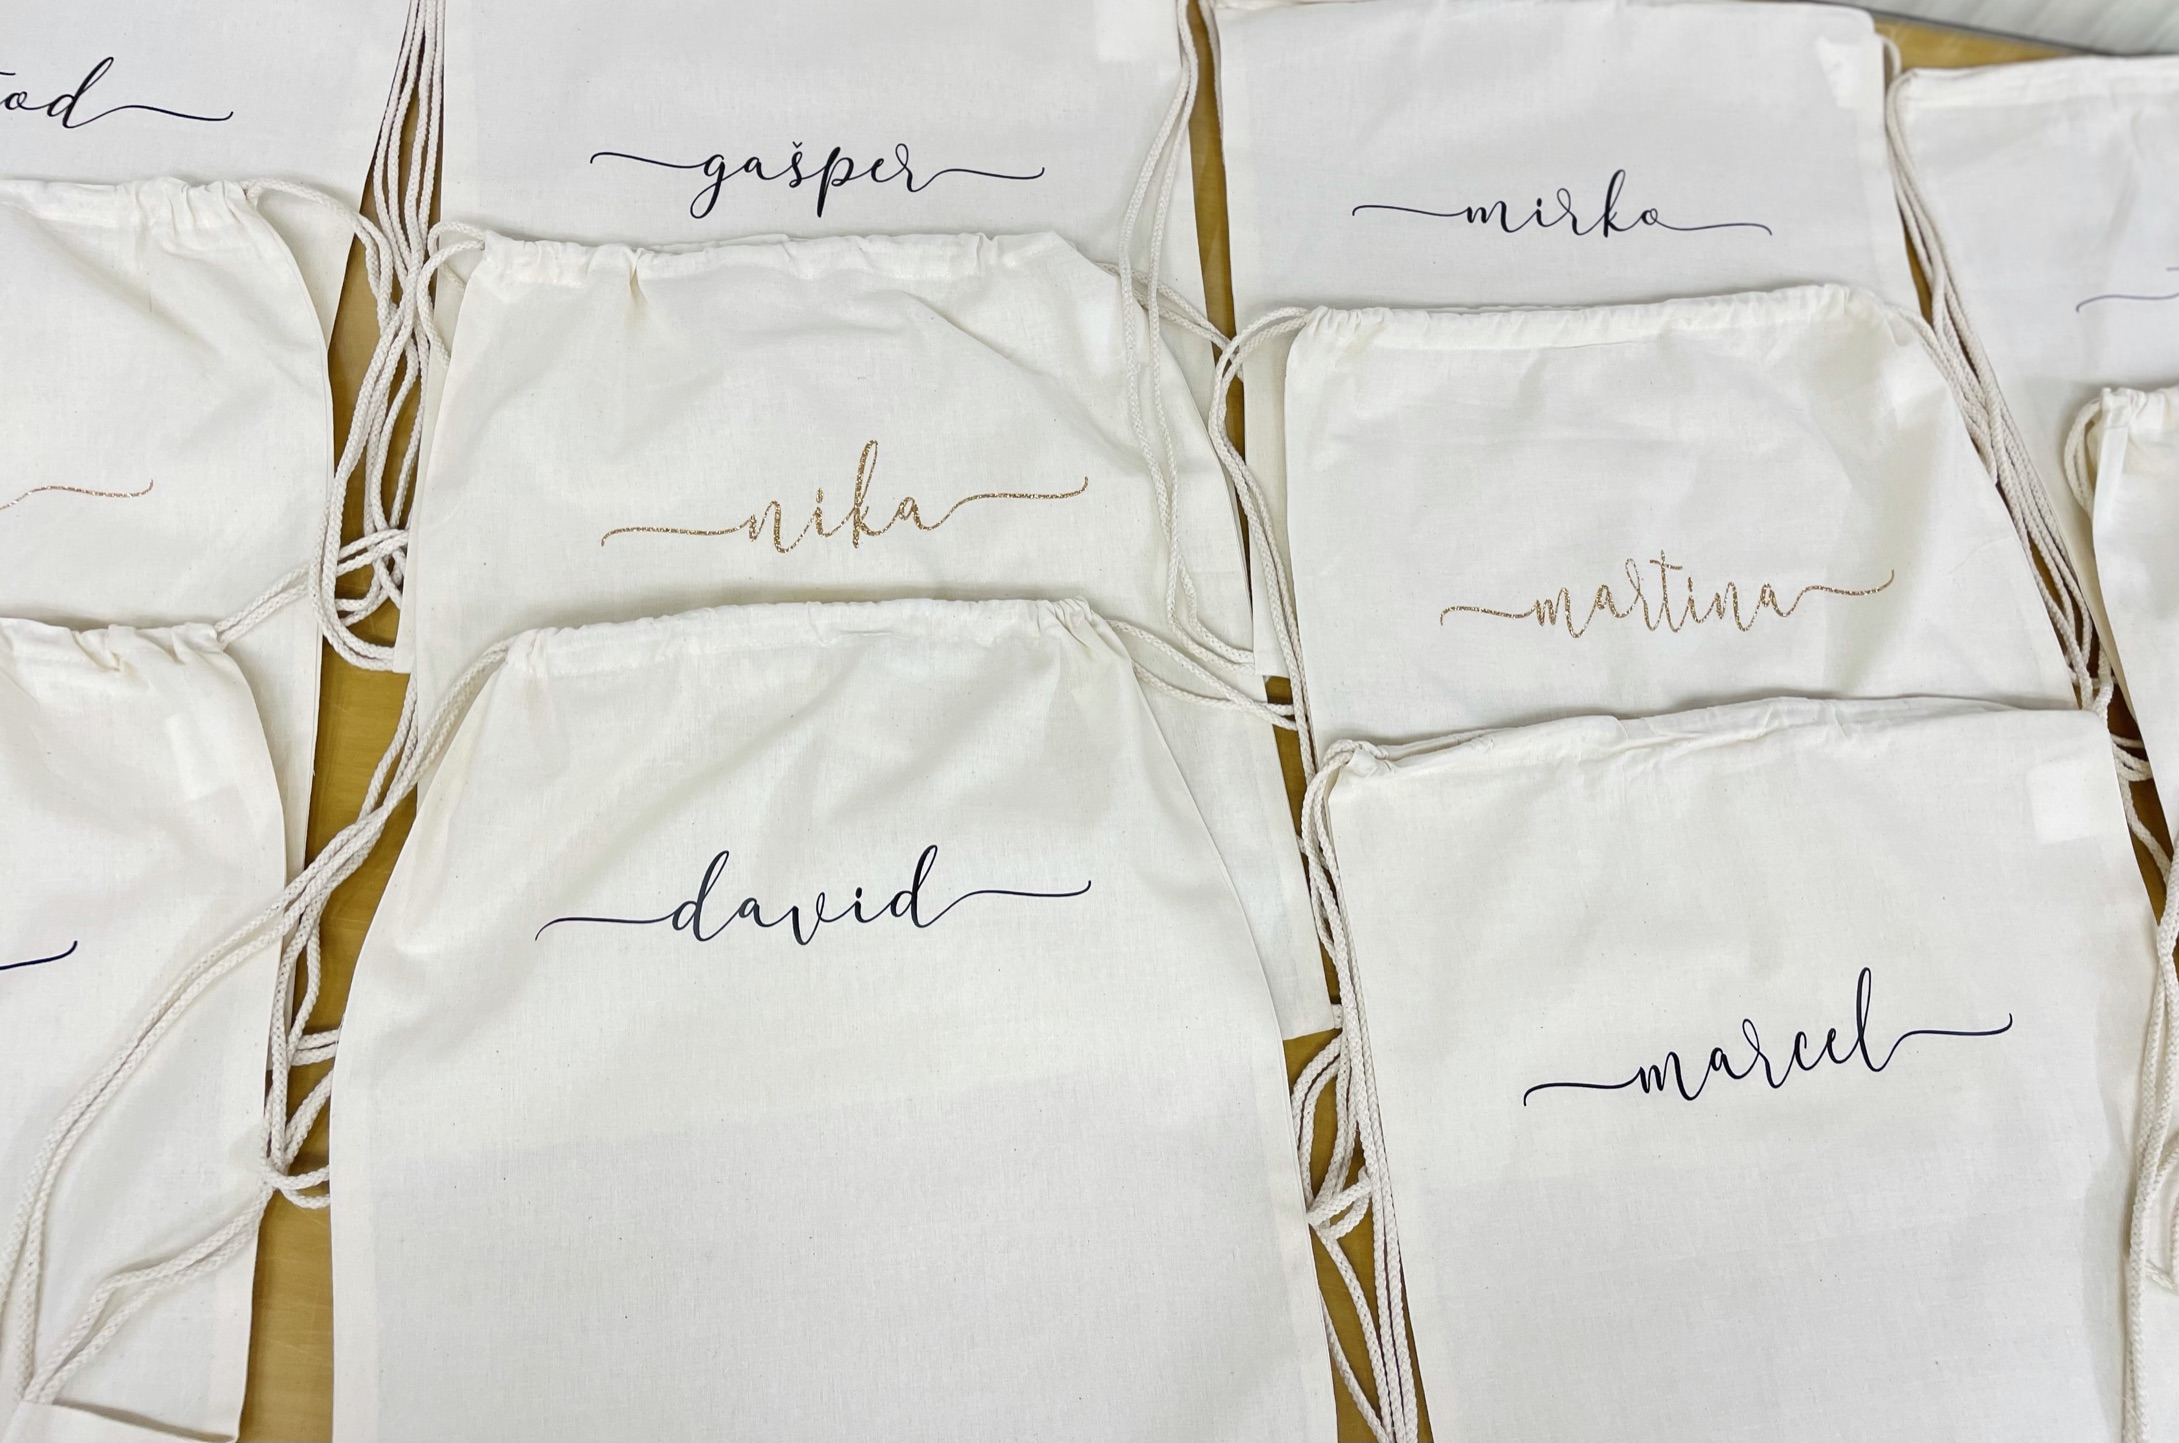 gašper
mirko
nika
martina
david
marcel